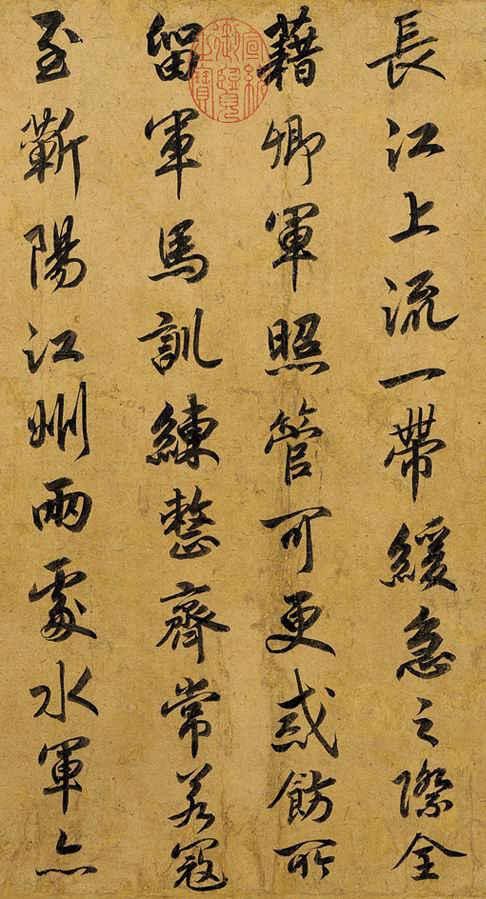 長江上流一帶緩急之際全
藉卿軍照管可更戒飭所
留軍馬訓練整齊常若寇
至蘄陽江州兩處水軍亦
宣統御覽之寶